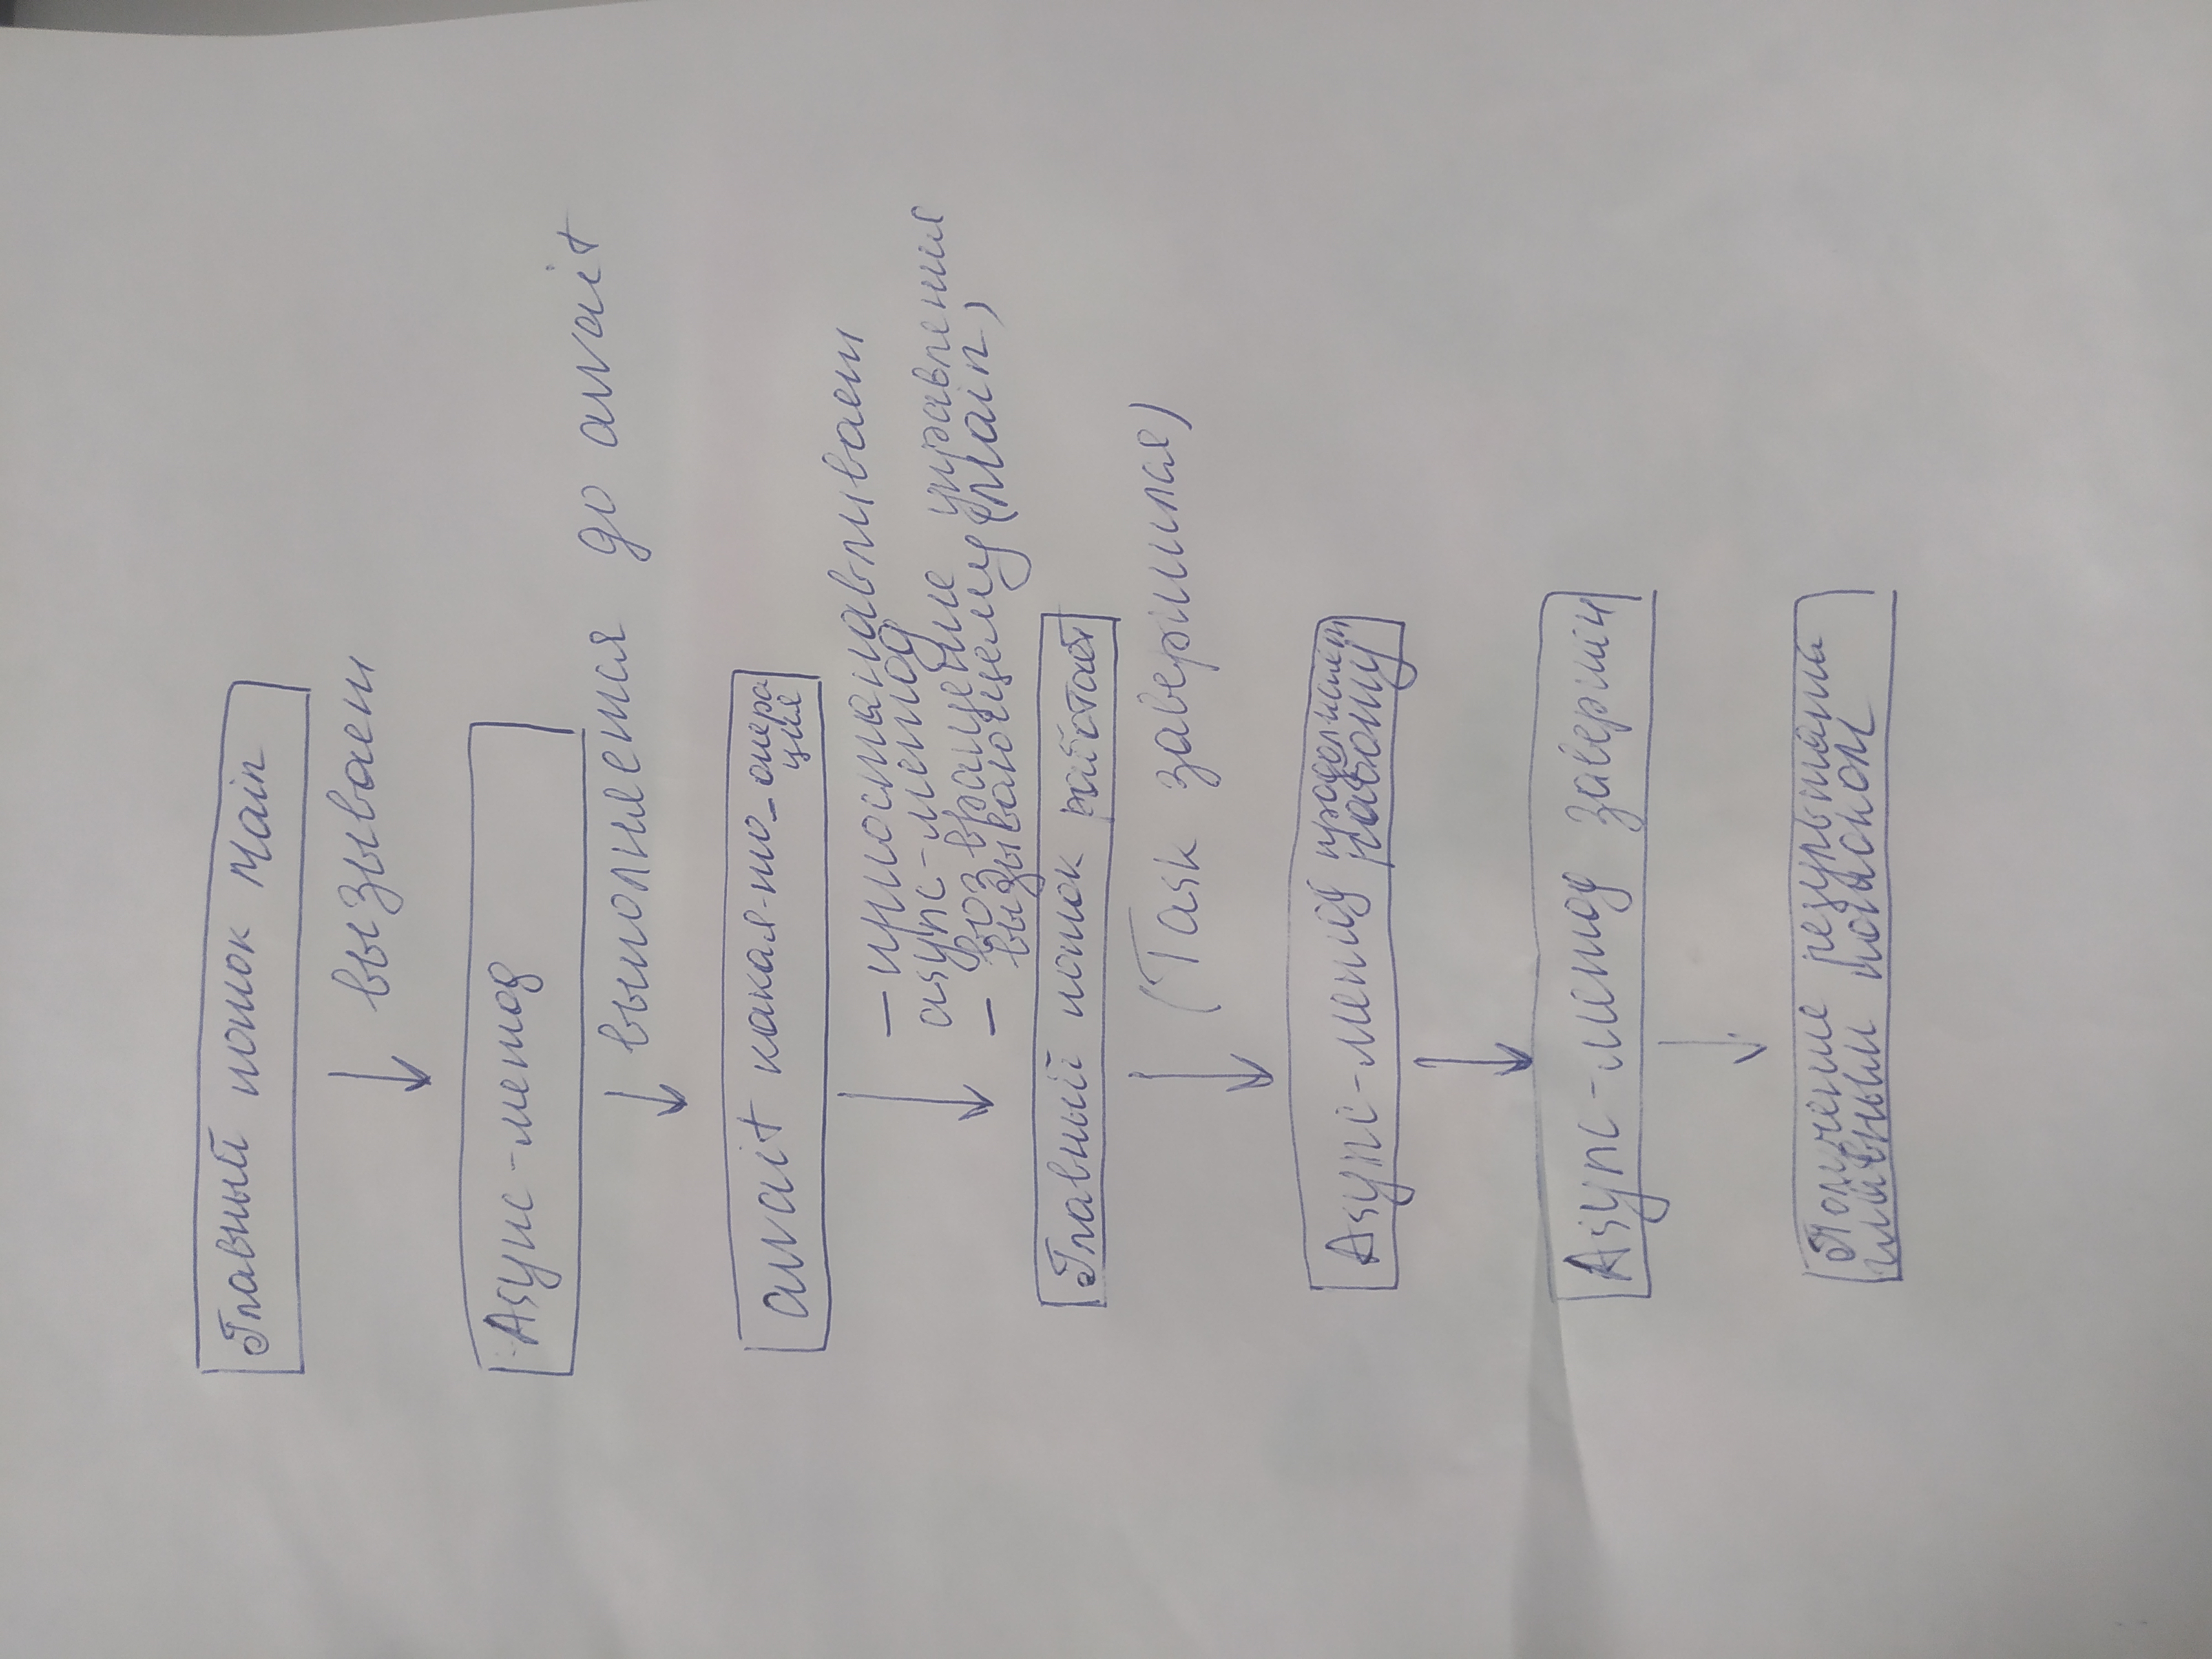 Главный поток Main
вызывает
Async-метод
выполняется до await
await какая-то_опера
ция
– приостанавливает
async-метод
– возвращение управления
вызывающему (Main)
Главный поток работает
(Task завершился)
Async-метод продолжает
работу
Async-метод завершен
Получение результата
главным потоком